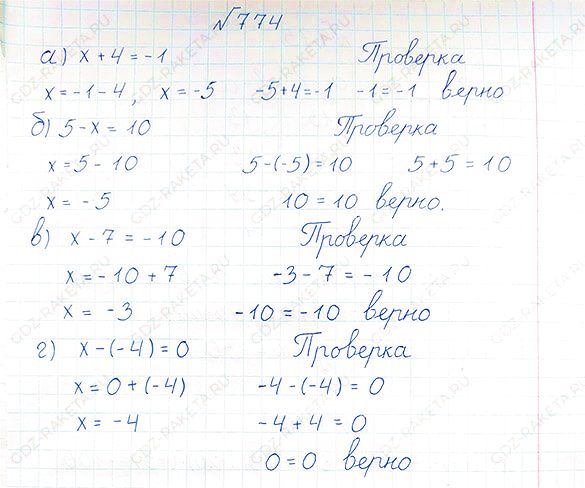 №774
а) x + 4 = -1 Проверка
x = -1 - 4, x = -5 -5+4=-1 -1=-1 верно
б) 5 - x = 10 Проверка
x = 5 - 10 5-(-5)=10 5+5=10
x = -5 10=10 верно.
в) x - 7 = -10 Проверка
x = -10 + 7 -3-7 = -10
x = -3 -10=-10 верно
г) x-(-4)=0 Проверка
x = 0 + (-4) -4-(-4) = 0
x = -4 -4+4=0
0=0 верно
GDZ-RAKETA.RU